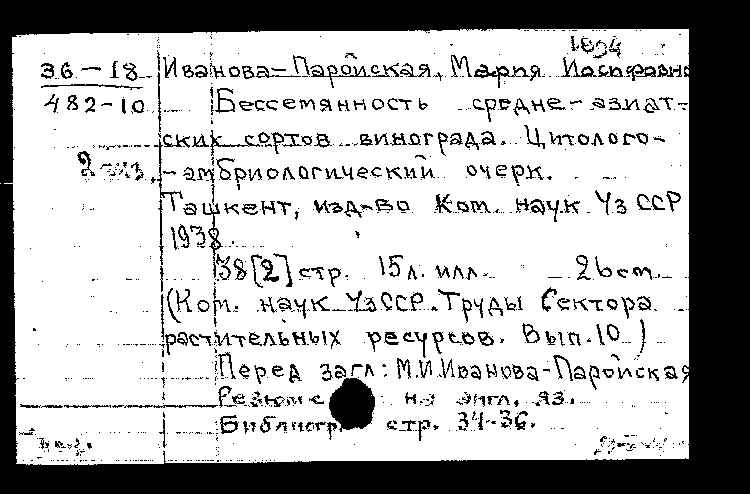 1894
36-18 Иванова-Паройская, Мария Иосифовна
482-10 Бессемянность средне-азиат-
ских сортов винограда. Цитолого-
2 экз. -эмбриологический очерк.
Ташкент, изд-во Ком. наук УзССР
1938.
38[2] стр. 15 л. илл. 26 см.
(Ком. наук УзССР. Труды Сектора
растительных ресурсов. Вып. 10.)
Перед загл: М.И.Иванова-Паройская
Резюме на англ. яз.
Библиогр. стр. 34-36.